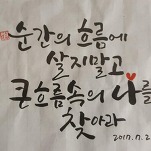 순간의 흐름에
살지말고
큰흐름속의 나를
찾아라
2017.7.2